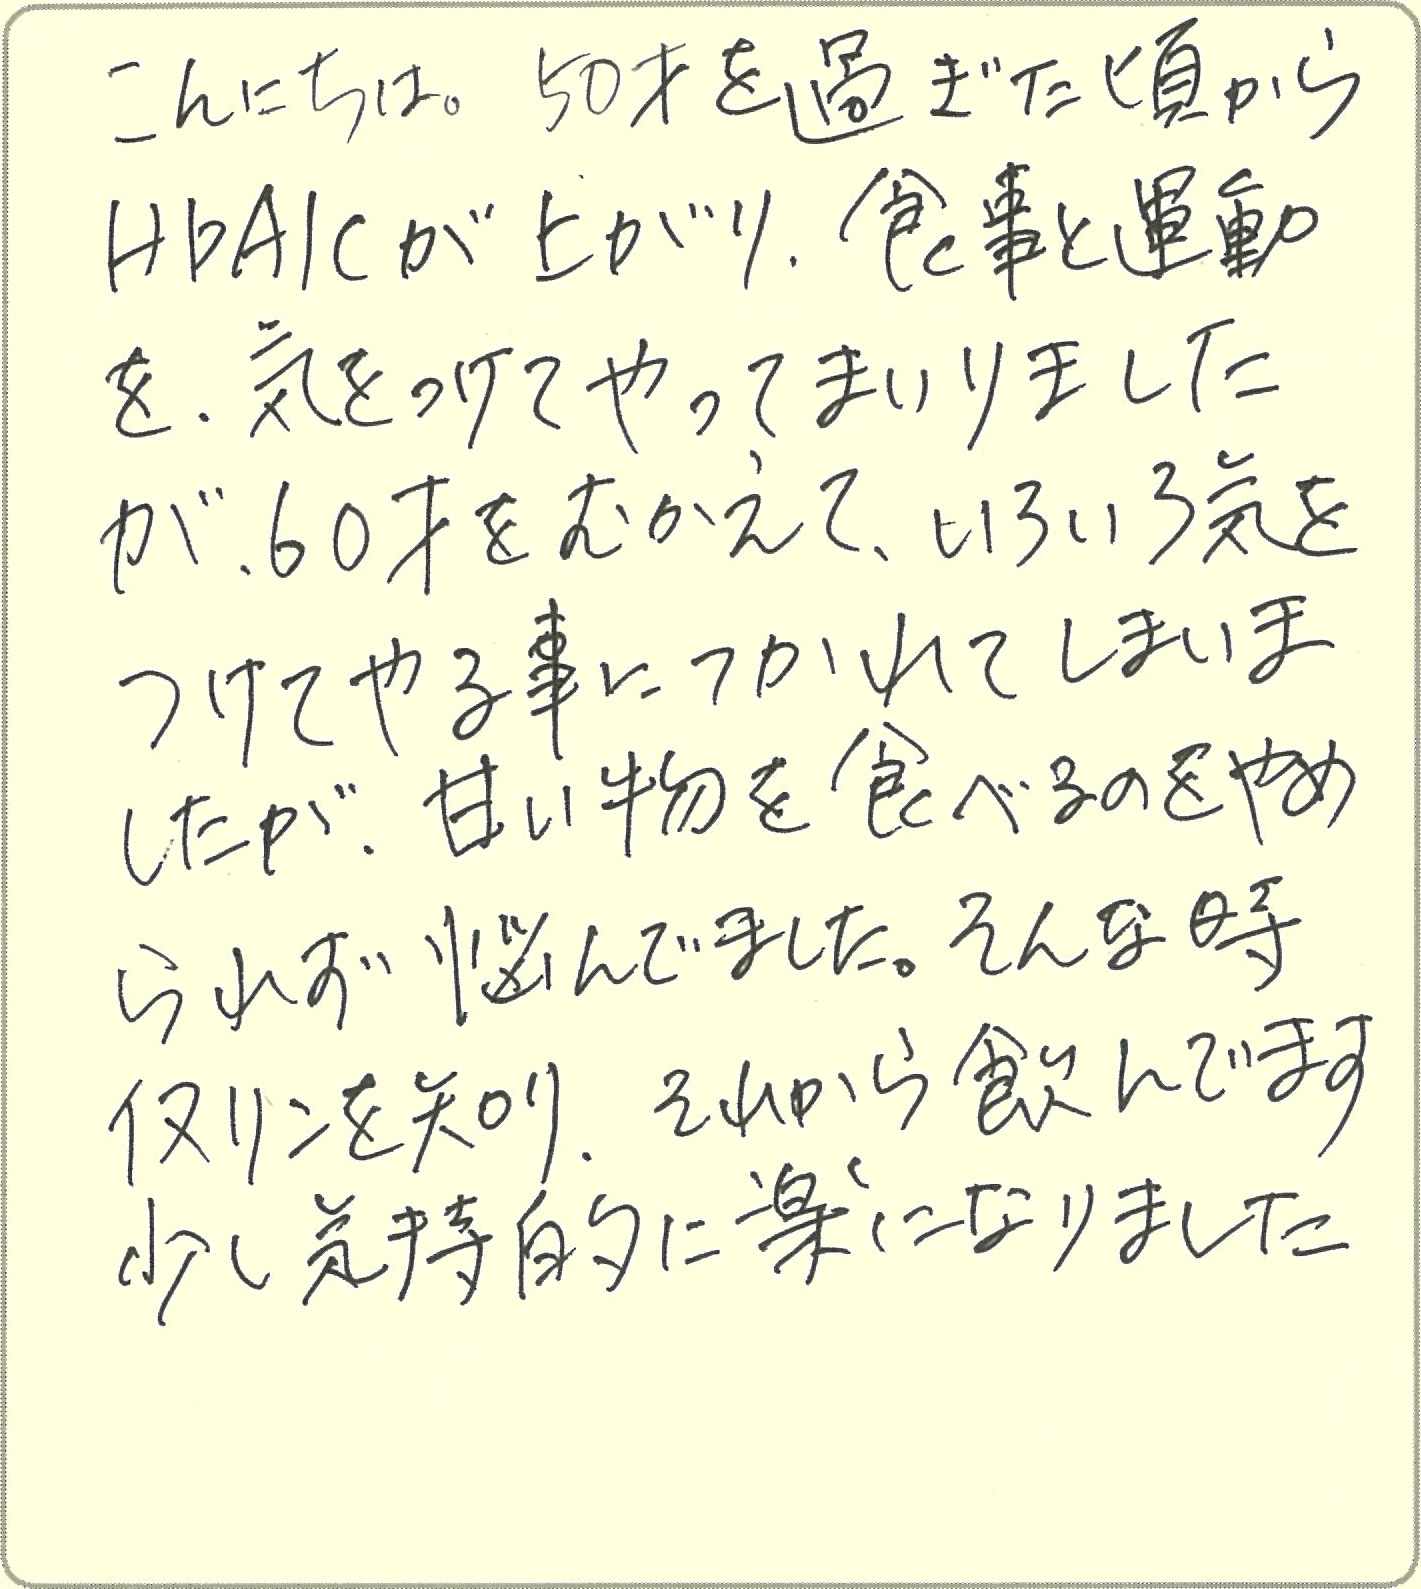 こんにちは。50才を過ぎた頃から
HbA1cが上がり、食事と運動
を、気をつけてやってまいりました
が、60才をむかえて、いろいろ気を
つけてやる事につかれてしまいま
したが、甘い物を食べるのをやめ
られず悩んでました。そんな時
イヌリンを知り、それから飲んでます
少し気持的に楽になりました